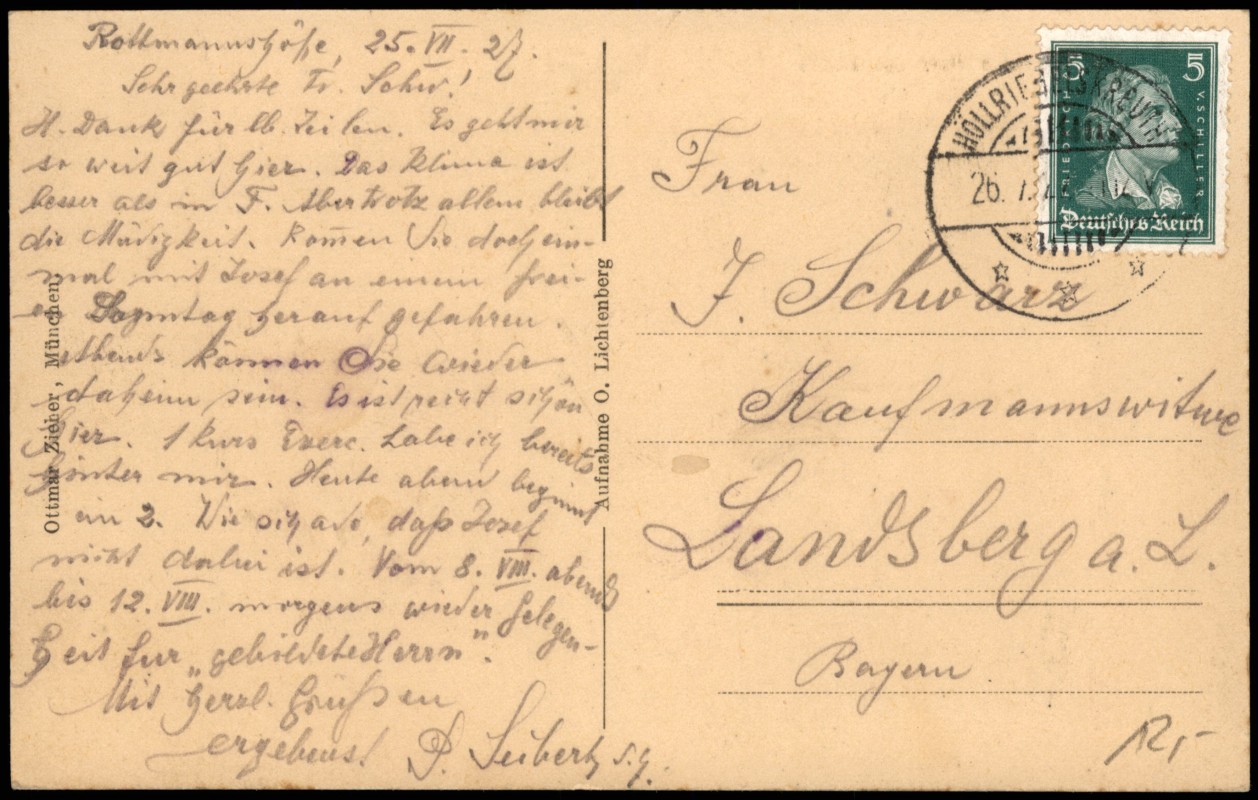 Rottmannshöhe, 25. VII. 27.
Sehr geehrte Fr. Schw.!
H. Dank für lb. Zeilen. Es geht mir
so weit gut hier. Das Klima ist
besser als in F. Aber trotz allem bleibt
die Müdigkeit. Kom̄en Sie doch ein-
mal mit Josef an einem frei-
en Sonntag herauf gefahren.
Abends können Sie wieder
daheim sein. Es ist recht schön
hier. 1 Kurs Exerc. habe ich bereits
hinter mir. Heute abend beginnt
ein 2. Wie schade, daß Josef
nicht dabei ist. Vom 8. VIII. abends
bis 12. VIII. morgens wieder Gelegen-
heit für „gebildete Herrn".
Mit herzl. Grüßen
ergebenst P. Seibert S.J.
Ottmar Zieher, München
Aufnahme O. Lichtenberg
HÖLLRIEGELSKREUTH
26. 7.
5 5
FRIEDRICH V. SCHILLER
Deutsches Reich
Frau
J. Schwarz
Kaufmannswitwe
Landsberg a. L.
Bayern
12,-